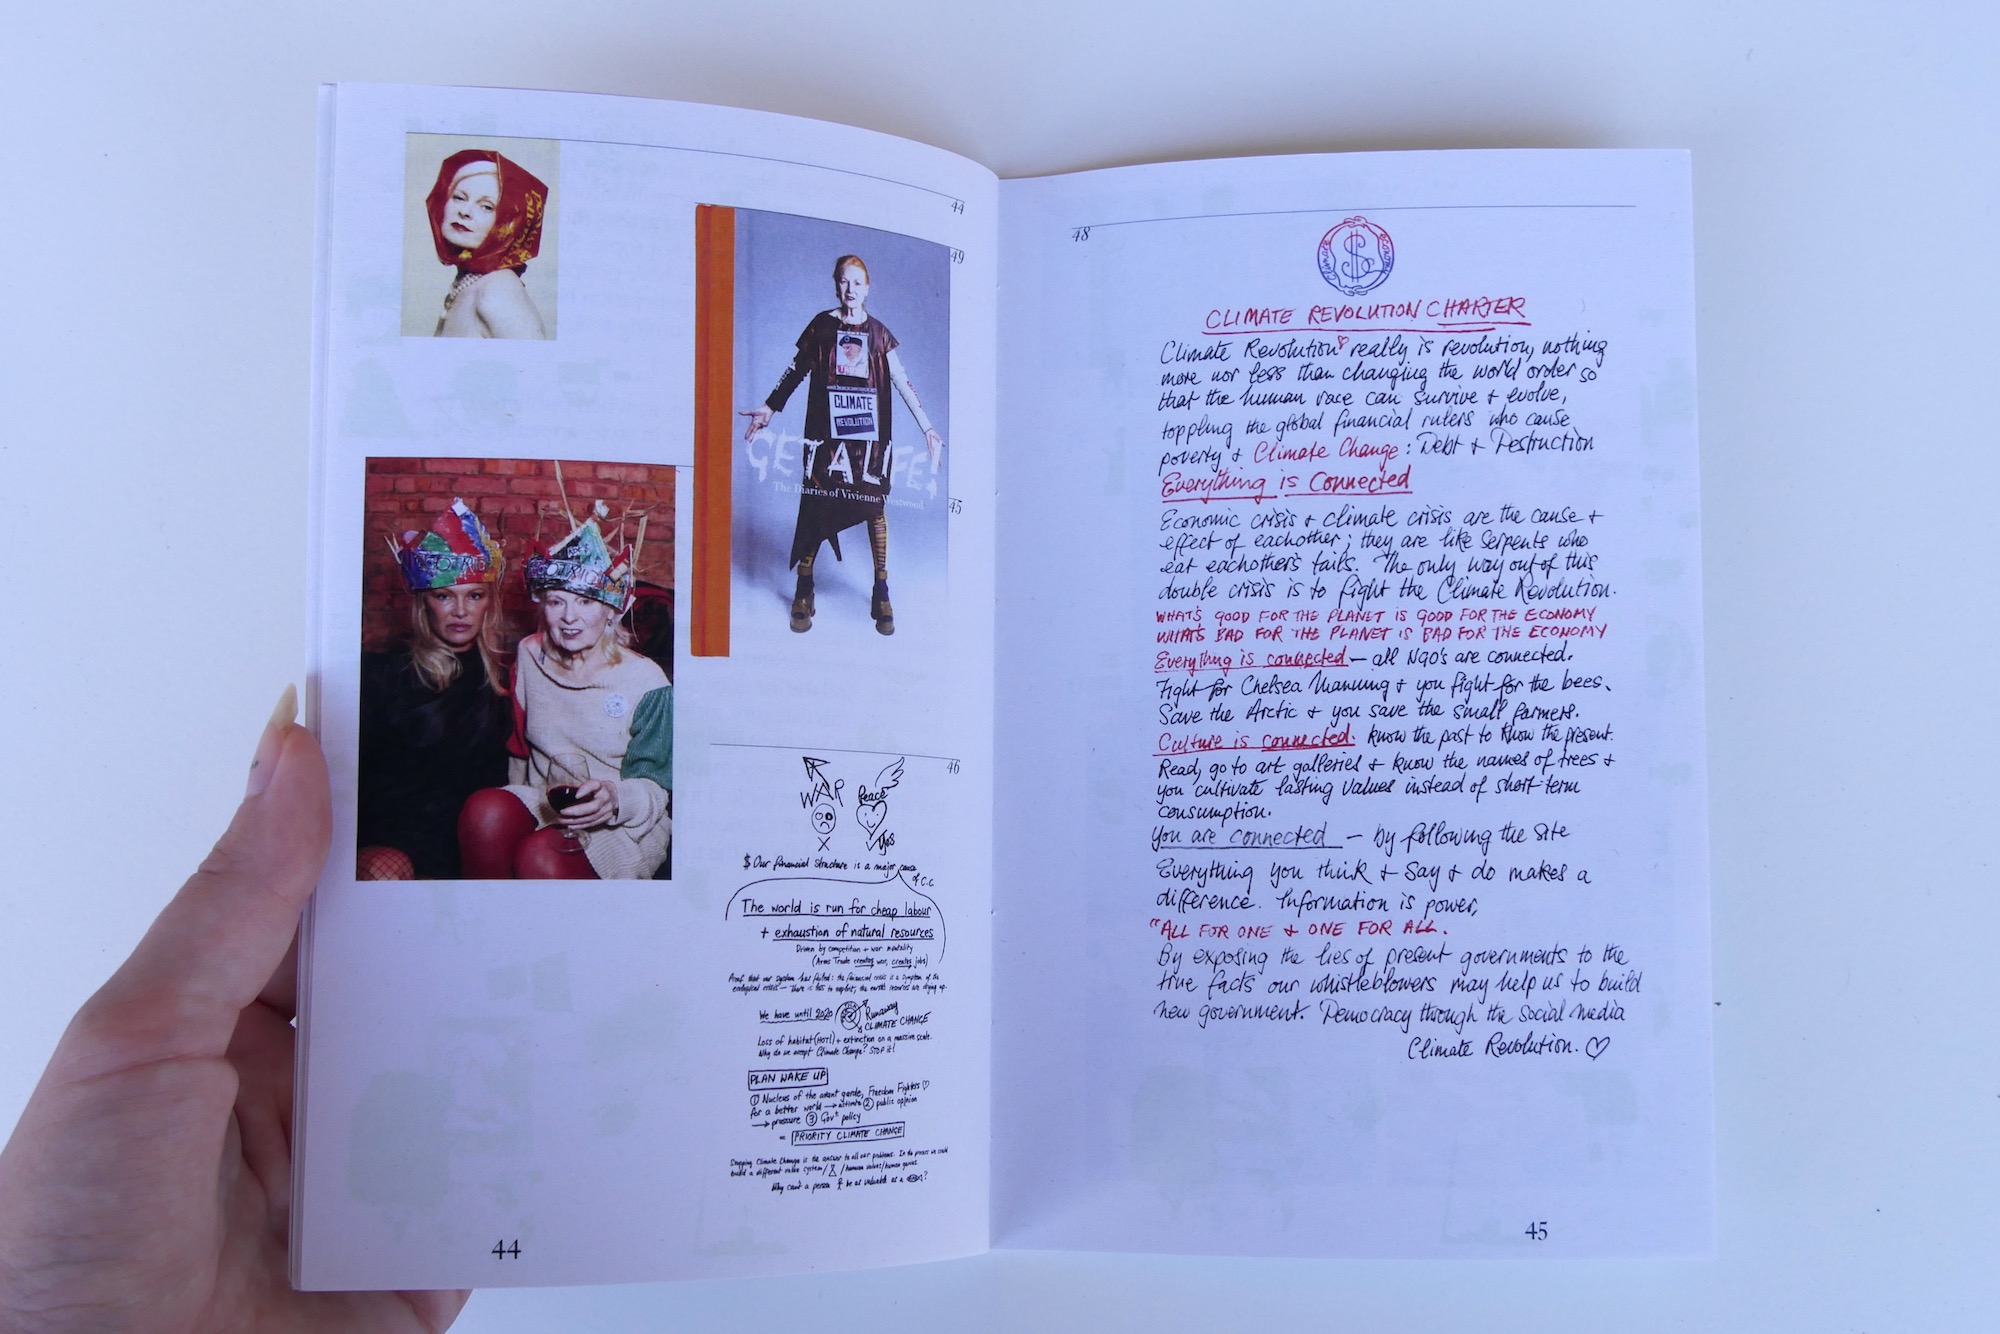 44
49
CLIMATE
REVOLUTION
GET A LIFE!
The Diaries of Vivienne Westwood
45
46
WAR
Peace
Yes
$ Our financial structure is a major cause
of C.C.
The world is run for cheap labour
+ exhaustion of natural resources
Driven by competition + war mentality
(Arms Trade creates war, creates jobs)
Proof that our system has failed: the financial crisis is a symptom of the
ecological crisis — there is less to exploit; the earth's resources are drying up.
We have until 2020
Runaway
CLIMATE CHANGE
Loss of habitat (HOT!) + extinction on a massive scale.
Why do we accept Climate Change? STOP it!
PLAN WAKE UP
① Nucleus of the avant garde, Freedom Fighters ♡
for a better world → activate ② public opinion
→ pressure ③ Govt policy
= PRIORITY CLIMATE CHANGE
Stopping Climate Change is the answer to all our problems. In the process we could
build a different value system / / human values / human genius
Why can't a person be as valuable as a ?
44
48
Climate Economy
$
CLIMATE REVOLUTION CHARTER
Climate Revolution♡ really is revolution, nothing
more nor less than changing the world order so
that the human race can survive + evolve,
toppling the global financial rulers who cause
poverty + Climate Change: Debt + Destruction
Everything is Connected
Economic crisis + climate crisis are the cause +
effect of eachother; they are like serpents who
eat eachother's tails. The only way out of this
double crisis is to fight the Climate Revolution.
WHAT'S GOOD FOR THE PLANET IS GOOD FOR THE ECONOMY
WHAT'S BAD FOR THE PLANET IS BAD FOR THE ECONOMY
Everything is connected — all NGO's are connected.
Fight for Chelsea Manning + you fight for the bees.
Save the Arctic + you save the small farmers.
Culture is connected. Know the past to know the present.
Read, go to art galleries + know the names of trees +
you cultivate lasting values instead of short-term
consumption.
You are connected — by following the site
Everything you think + say + do makes a
difference. Information is power,
"ALL FOR ONE + ONE FOR ALL.
By exposing the lies of present governments to the
true facts our whistleblowers may help us to build
new government. Democracy through the social media
Climate Revolution. ♡
45